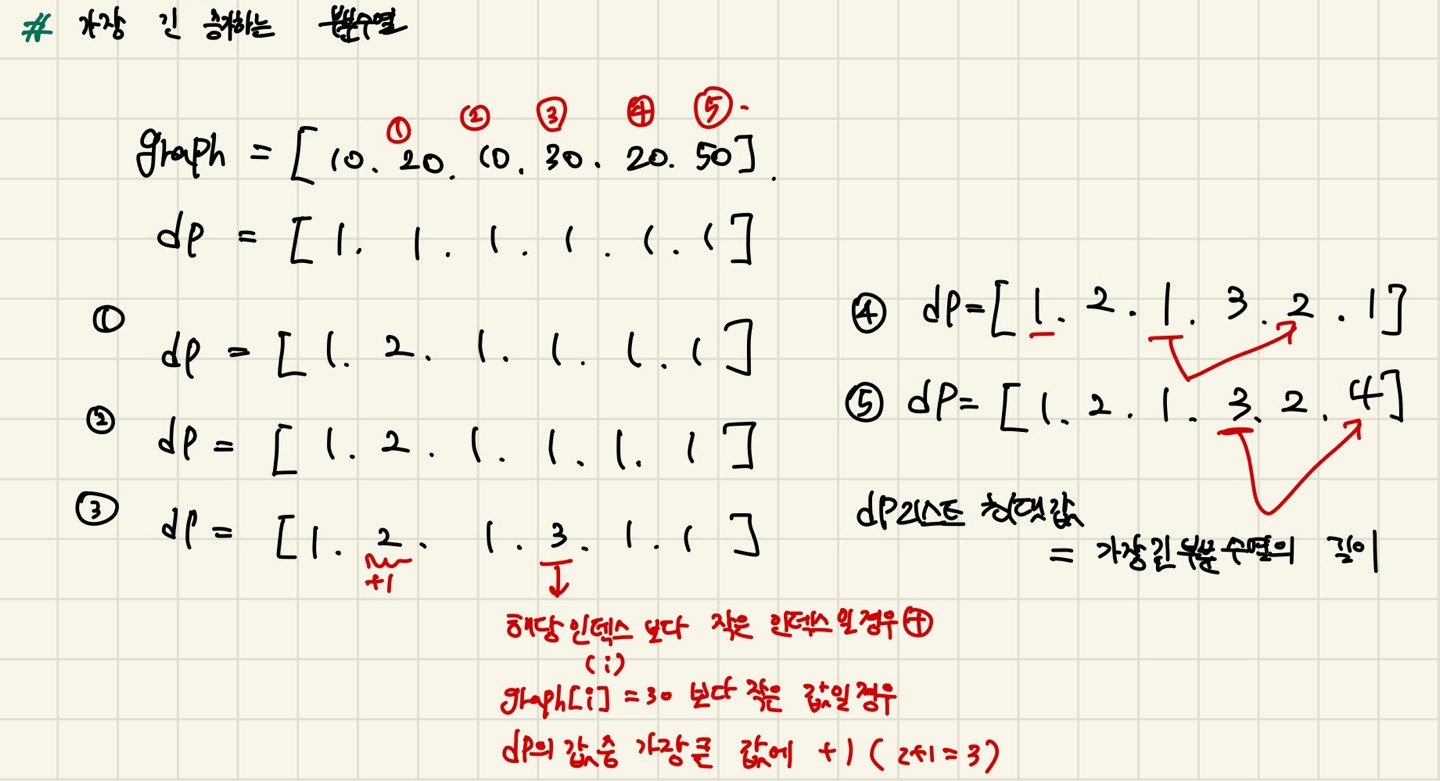 # 가장 긴 증가하는 부분수열
① ② ③ ④ ⑤
graph = [10. 20. 10. 30. 20. 50].
dp = [1. 1. 1. 1. 1. 1]
① dp = [1. 2. 1. 1. 1. 1]
② dp = [1. 2. 1. 1. 1. 1]
③ dp = [1. 2. 1. 3. 1. 1]
+1
해당 인덱스 보다 작은 인덱스 일 경우 +
(i)
graph[i] = 30 보다 작은 값일 경우
dp의 값중 가장 큰 값에 +1 (2+1=3)
④ dp=[1. 2. 1. 3. 2. 1]
⑤ dp= [1. 2. 1. 3. 2. 4]
dp리스트 최댓값
= 가장긴 부분 수열의 길이